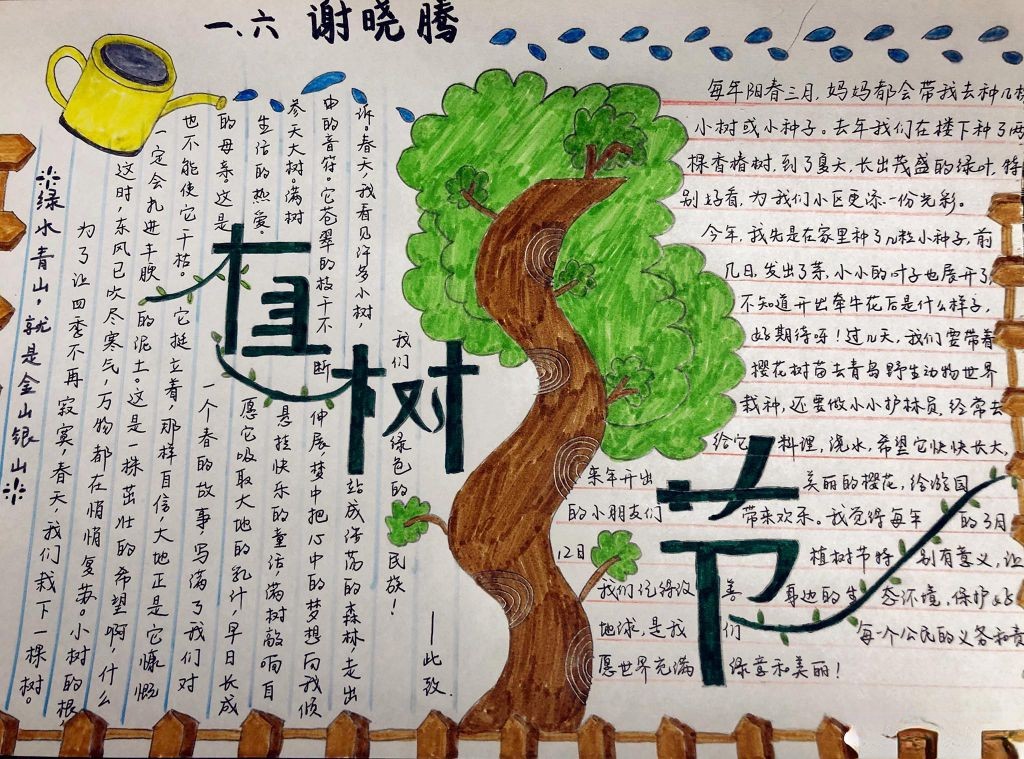 一、六 谢晓腾
植树节
※绿水青山,就是金山银山※
为了让四季不再寂寞,春天,我们栽下一棵树。
这时,东风已吹尽寒气,万物都在悄悄复苏。小树的根,
一定会扎进丰腴的泥土。这是一株茁壮的希望啊,什么
也不能使它干枯。它挺立着,那样自信,大地正是它慷慨
的母亲.这是一个春的故事,写满了我们对
生活的热爱.愿它吸取大地的乳汁,早日长成
参天大树。满树悬挂快乐的童话,满树敲响自
由的音符。它苍翠的枝干不断伸展,梦中把心中的梦想向我倾
诉。春天,我看见许多小树,站成浩荡的森林,走出
我们绿色的民族!
——此致.
每年阳春三月,妈妈都会带我去种几
小树或小种子。去年我们在楼下种了两
棵香椿树,到了夏天,长出茂盛的绿叶,特
别好看,为我们小区更添一份光彩。
今年,我先是在家里种了几粒小种子,前
几日,发出了芽,小小的叶子也展开了,
不知道开出牵牛花后是什么样子,
好期待呀!过几天,我们要带着
樱花树苗去青岛野生动物世界
栽种,还要做小小护林员,经常去
给它料理,浇水,希望它快快长大,
来年开出美丽的樱花,给游园
的小朋友们带来欢乐。我觉得每年的3月
12日植树节特别有意义,让
我们记得改善身边的生态环境,保护好
地球,是我们每个公民的义务和责
愿世界充满绿意和美丽!